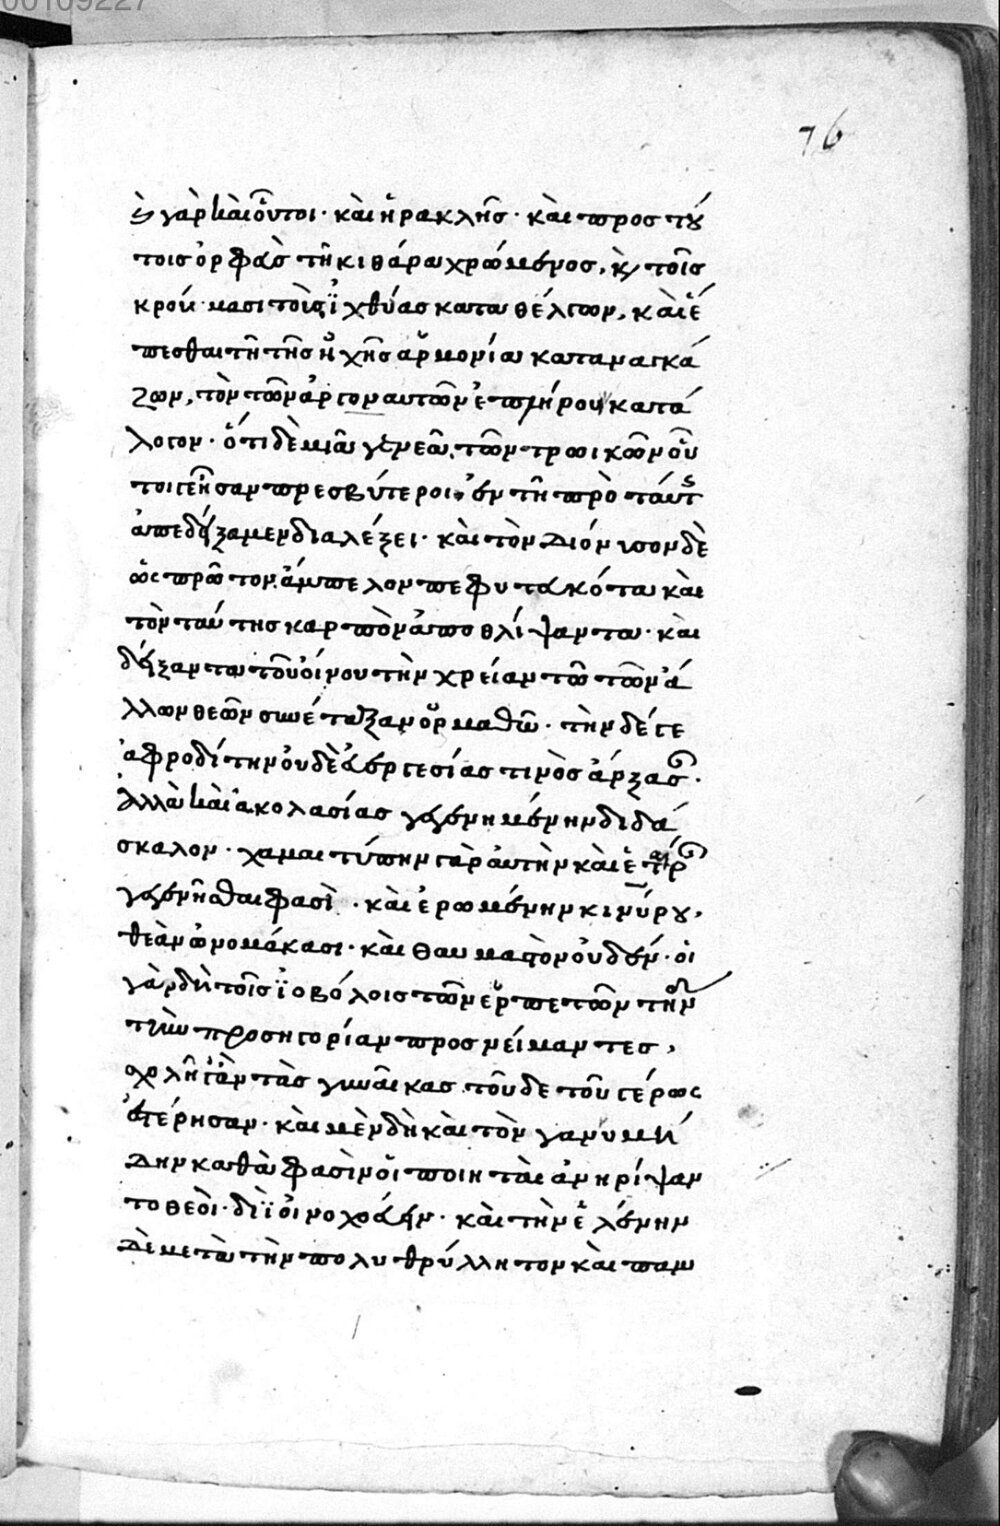 00109227
76
γὰρ καὶ οὗτοι· καὶ ἡρακλῆς· καὶ προς τού
τοις ὀρφεὺς τῆ κιθάρα χρώμενος, καὶ τοῖς
κρούμασι τοὺς ἰχθύας καταθέλγων, καὶ ἕ
πεσθαι τῆ τῆς ἠχῆς ἁρμονία καταναγκά
ζων, τὸν τῶν ἀργοναυτῶν ἐπλήρου κατά
λογον· ὅτι δὲ μιᾶ γενεᾶ τῶν τρωικῶν οὗ
τοι γενῆσαν πρεσβύτεροι, ἐν τῆ πρὸ ταύτης
ἀπεδείξαμεν διαλέξει· καὶ τὸν διόνυσον δὲ
ὡς πρῶτον ἄμπελον πεφυτευκότα καὶ
τὸν ταύτης καρπὸν ἀποθλίψαντα· καὶ
δείξαντα τοῦ οἴνου τὴν χρείαν τῶ τῶν ἄ
λλων θεῶν συνέταξαν ὁρμαθῶ· τὴν δέ γε
ἀφροδίτην οὐδὲ εὐεργεσίας τινὸς ἄρξασαν·
ἀλλὰ καὶ ἀκολασίας γεγενημένην διδά
σκαλον· χαμαιτύπην γὰρ αὐτὴν καὶ ἑταίραν
γεγενῆσθαι φασὶ· καὶ ἐρωμένην κινύρου,
θεὰν ὠνομάκασι· καὶ θαυμαστὸν οὐδέν· οἱ
γὰρ δὴ τοῖς ἰοβόλοις τῶν ἑρπετῶν τὴν
προσηγορίαν προσνείμαντες,
σχολῆ γ' ἂν τὰς γυναῖκας τοῦδε τοῦ γέρως
ἐστέρησαν· καὶ μὲν δὴ καὶ τὸν γανυμή
δην καθὰ φασὶν οἱ ποιηταὶ ἀνηρίψαν
το θεὸι· διῒ οἰνοχοεύειν· καὶ τὴν ἑλένην
δὲ μετὰ τὴν πολυθρύλλητον καὶ παν